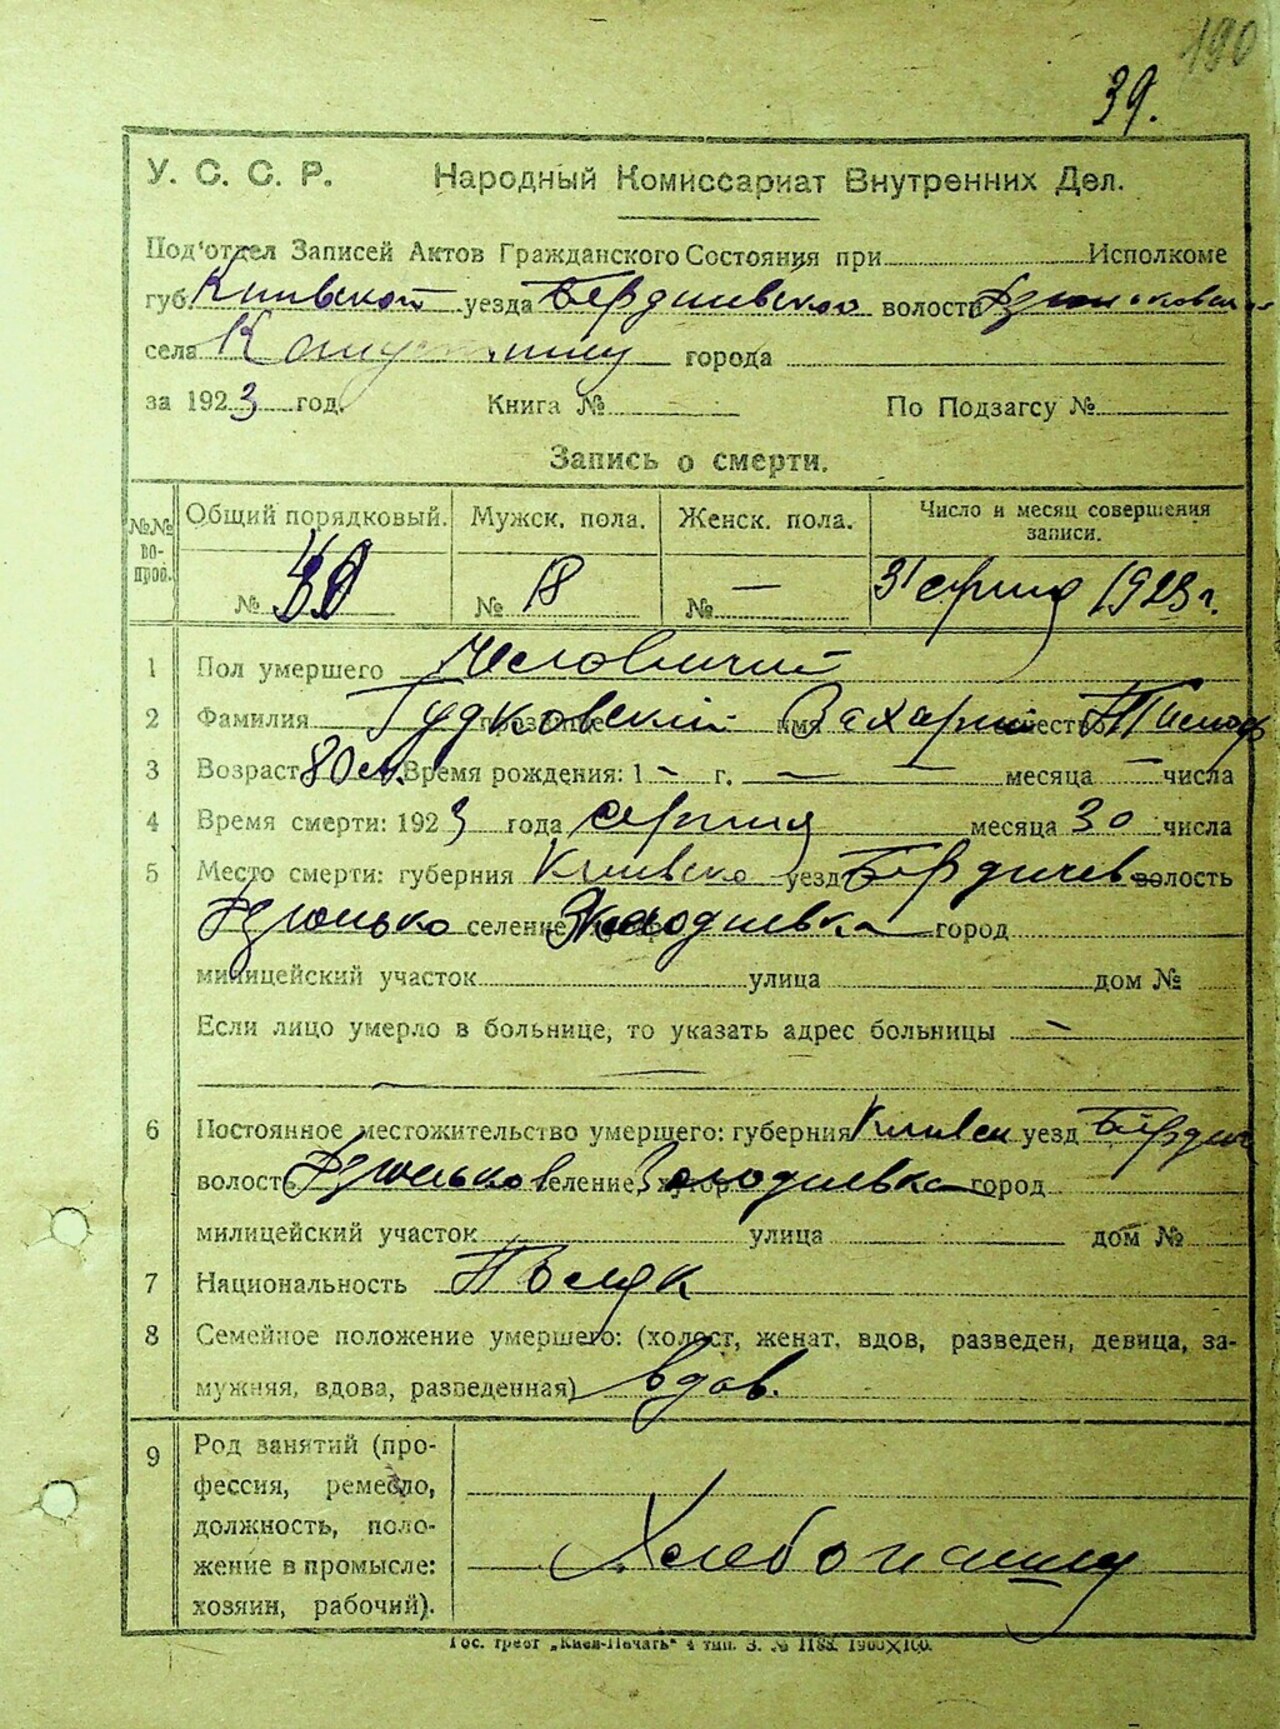 190
39.
У. С. С. Р. Народный Комиссариат Внутренних Дел.
Под'отдел Записей Актов Гражданского Состояния при Исполкоме
губ. Киивской уезда Бердичевского волости
села города
за 1923 год. Книга № По Подзагсу №
Запись о смерти.
№№ во-прос. Общий порядковый. Мужск. пола. Женск. пола. Число и месяц совершения записи.
№ № 18 № — 31 серпня 1923 г.
1 Пол умершего Чсловичий
2 Фамилия Гудковский имя Захарий
3 Возраст 80 л. Время рождения: 1 — г. — месяца — числа
4 Время смерти: 1923 года серпня месяца 30 числа
5 Место смерти: губерния Киивско уезд Бердичев волость
Дзюнько селение город
милицейский участок улица дом №
Если лицо умерло в больнице, то указать адрес больницы —
6 Постоянное местожительство умершего: губерния Киивск уезд Бердич
волость Дзюньков селение, хутор город
милицейский участок улица дом №
7 Национальность
8 Семейное положение умершего: (холост, женат, вдов, разведен, девица, за-
мужняя, вдова, разведенная) вдов.
9 Род занятий (про-
фессия, ремесло,
должность, поло-
жение в промысле: Хлебопашец
хозяин, рабочий).
Гос. трест „Киев-Печать“ 4 тип. З. № 1188. 1900×100.